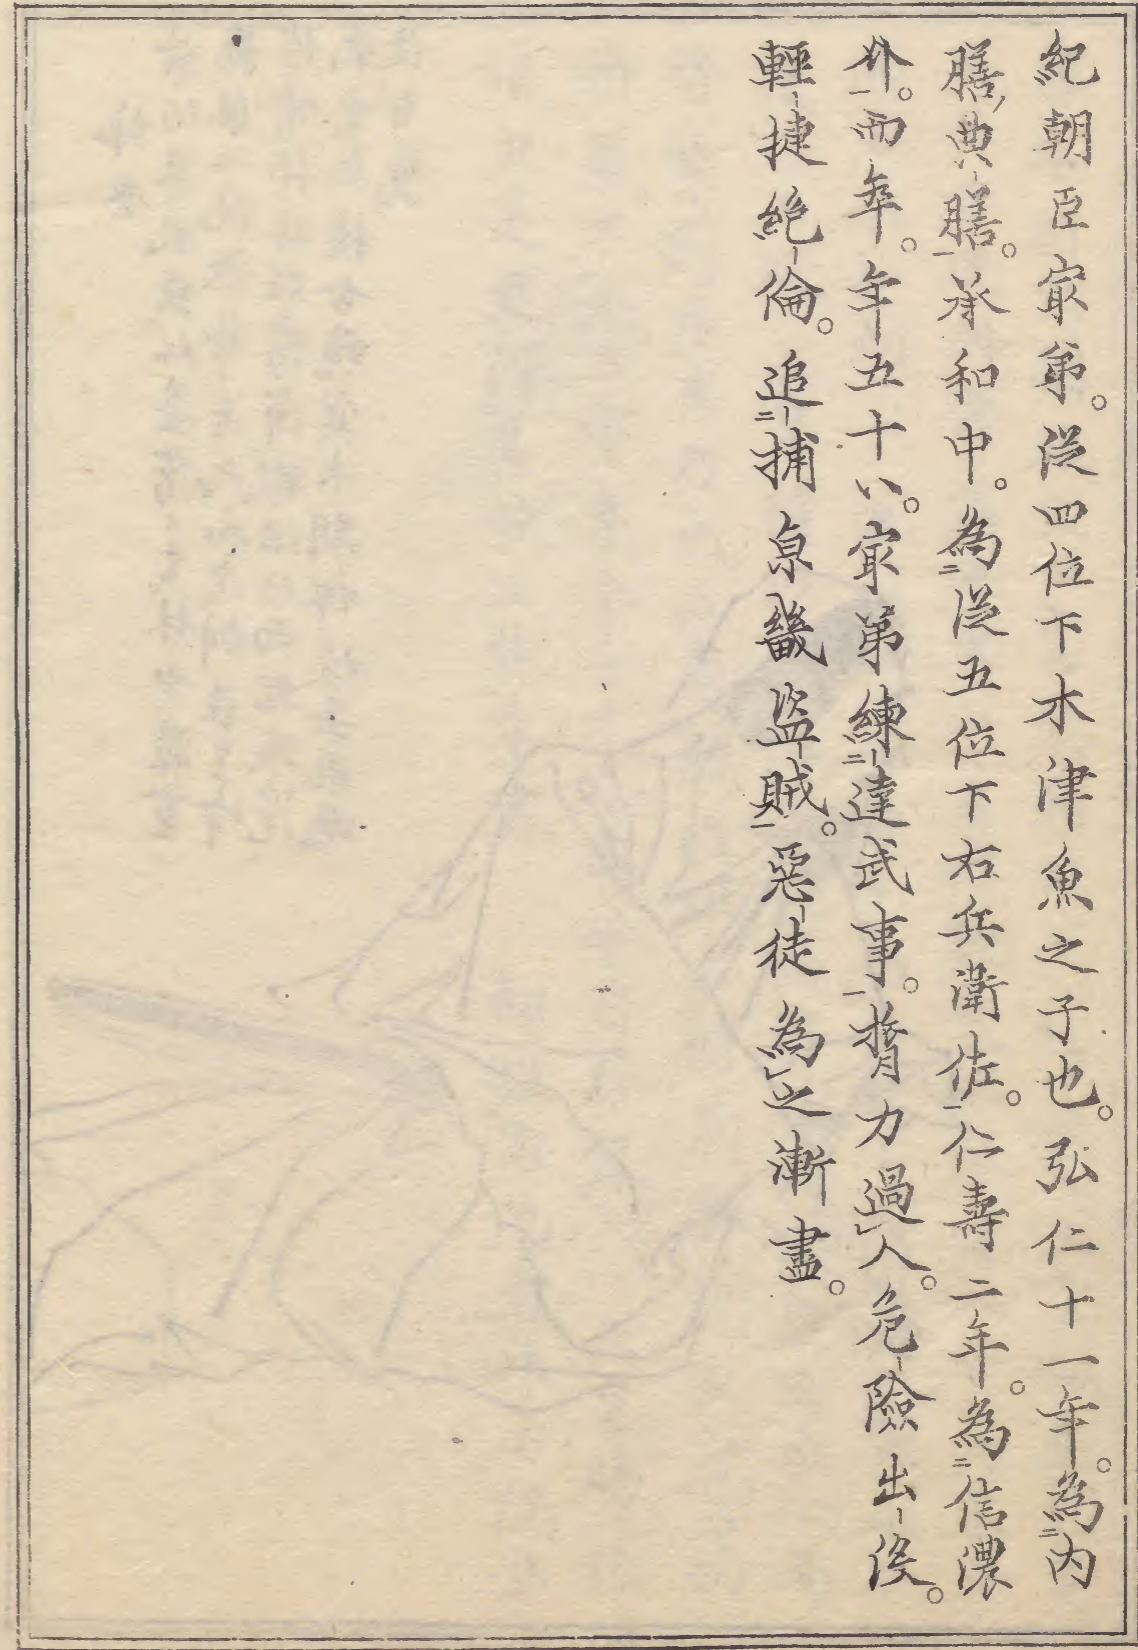 紀朝臣㝡弟。従四位下木津魚之子也。弘仁十一年。為内
膳典膳。承和中。為従五位下右兵衛佐。仁壽二年。為信濃
介。而卒。年五十八。㝡弟練達武事。膂力過人。危險出没。
輕捷絶倫。追捕亰畿盗賊。惡徒為之漸盡。